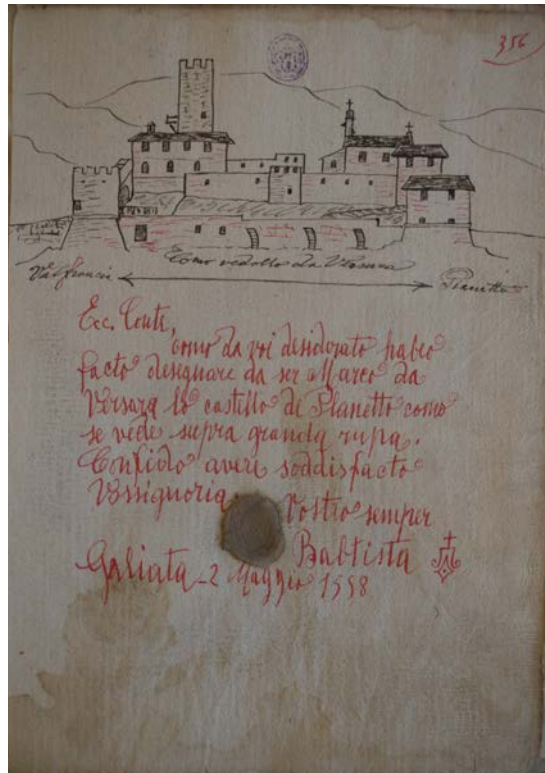 356
Como vedesto da Versara
Valfrancia Planetto
Ecc. Conte,
como da voi desiderato habeo
facto designare da ser Marco da
Versara lo castello de Planetto como
se vede supra granda rupa.
Confido avere soddisfacto
Vossignoria. Vostro semper
Babtista
Galiata - 2 Maggio 1558